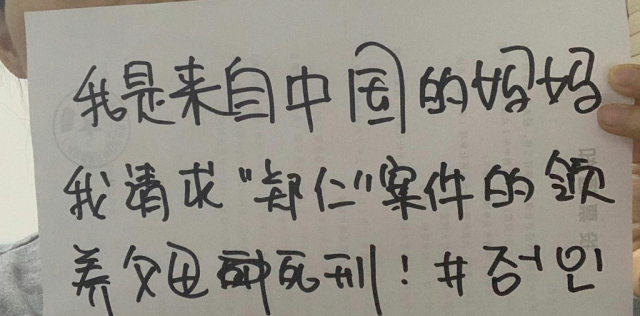 我是来自中国的妈妈
我请求"郑仁"案件的领
养父母判死刑！#정인